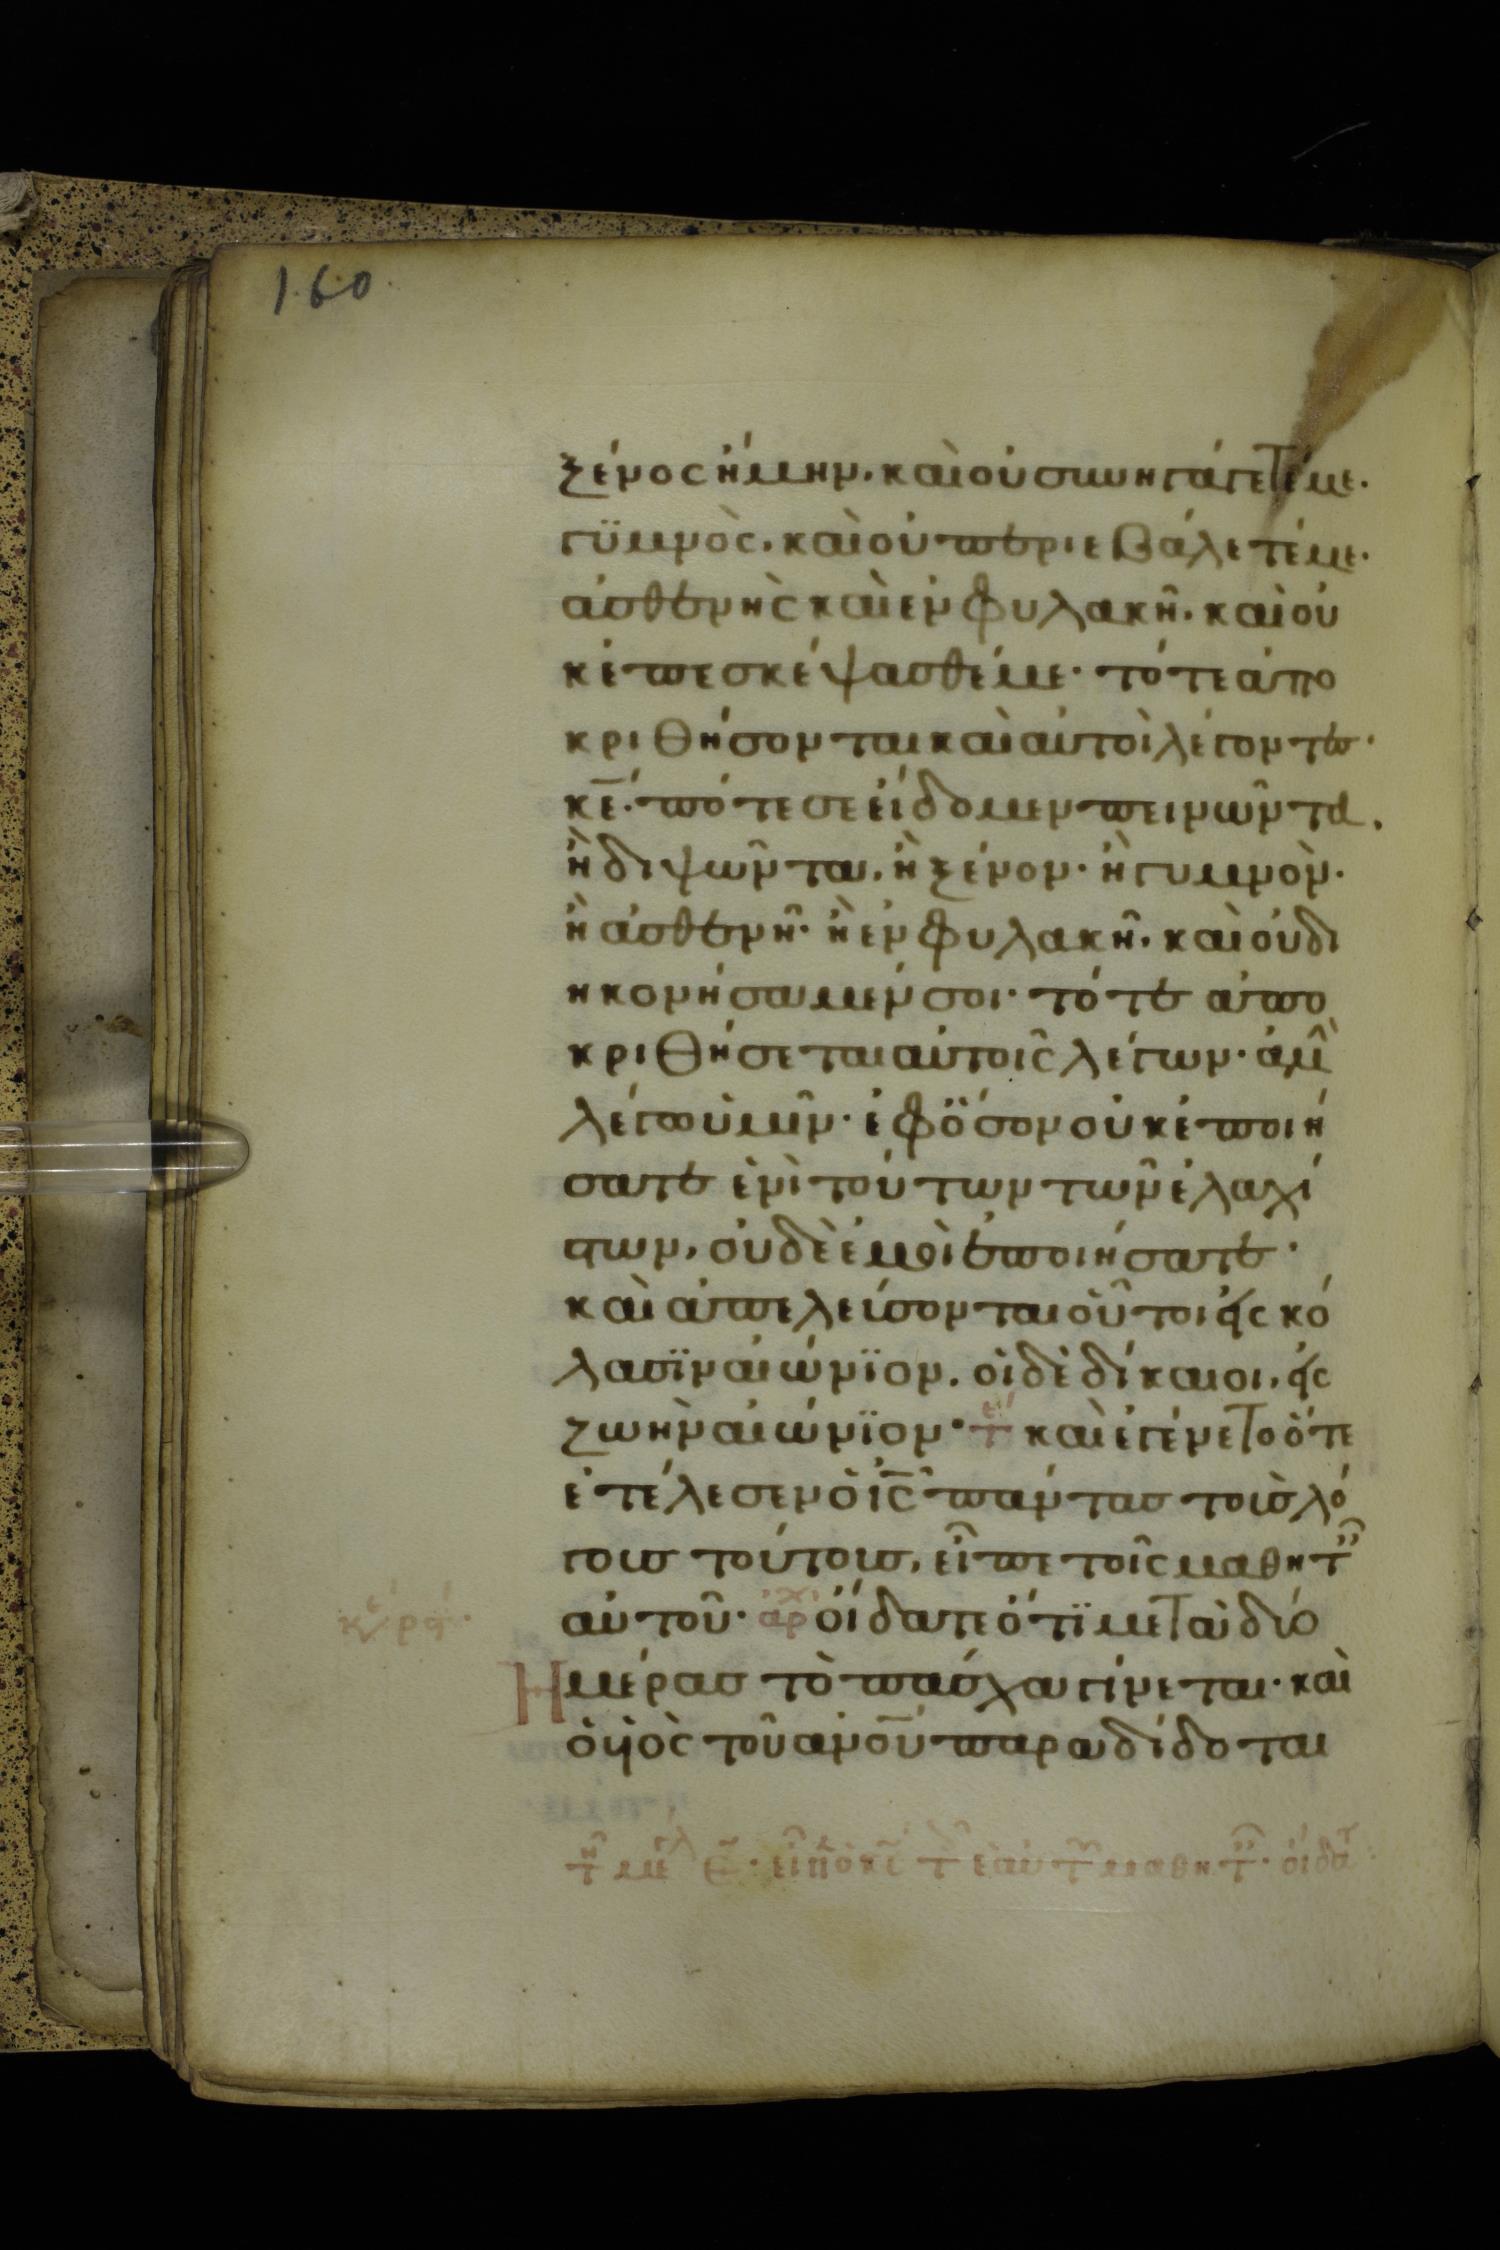 160
ξένος ἤμην. καὶ οὐ συνηγάγετέ με.
γϋμνὸς. καὶ οὐ περιεβάλετέ με.
ἀσθενὴς καὶ ἐν φυλακῆ. καὶ οὐ
κ ἐπεσκέψασθέ με. τότε ἀπο
κριθήσονται καὶ αὐτοὶ λέγοντες.
κ̅ε̅. πότε σε εἴδομεν πεινῶντα.
ἢ διψῶντα. ἢ ξένον. ἢ γυμνὸν.
ἢ ἀσθενῆ. ἢ ἐν φυλακῆ. καὶ οὐ δι
ηκονήσαμέν σοι. τότε ἀπο
κριθήσεται αὐτοῖς λέγων. ἀμὴ
λέγω ὑμῖν. ἐφ ὅσον οὐκ ἐποιή
σατε ἑνὶ τούτων τῶν ἐλαχί
στων, οὐδὲ ἐμοὶ ἐποιήσατε.
καὶ ἀπελεύσονται οὗτοι εἰς κό
λασϊν αἰώνϊον. οἱ δὲ δίκαιοι, εἰς
ζωὴν αἰώνϊον. τε καὶ ἐγένετο ὅτε
ἐτέλεσεν ὁ ι̅ς̅ πάντας τοὺς λό
γους τούτους, εἶπε τοῖς μαθητ
αὐτοῦ. ἀρχ οἴδατε ὅτϊ μετὰ δύο
Ἡμέρας τὸ πάσχα γίνεται. καὶ
ὁ υἱὸς τοῦ α̅ν̅ο̅υ̅ παραδίδοται